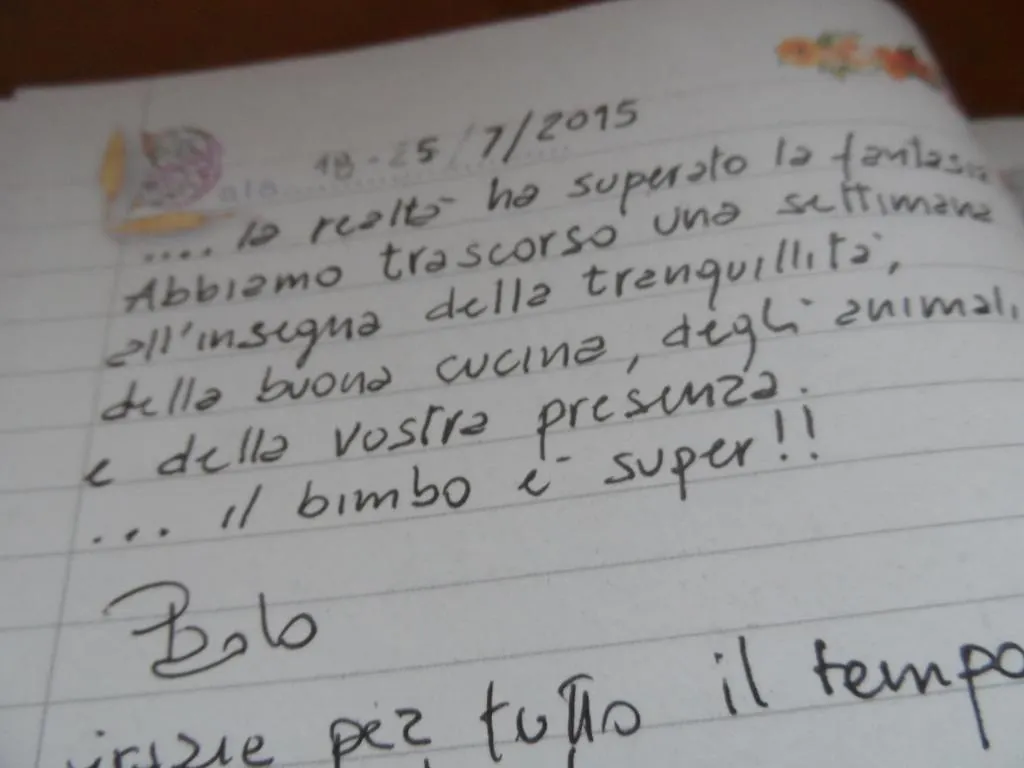 18-25/7/2015
.... la realtà ha superato la fantasia
Abbiamo trascorso una settimana
all'insegna della tranquillità,
della buona cucina, degli animali
e della vostra presenza.
... il bimbo è super!!
per tutto il tempo